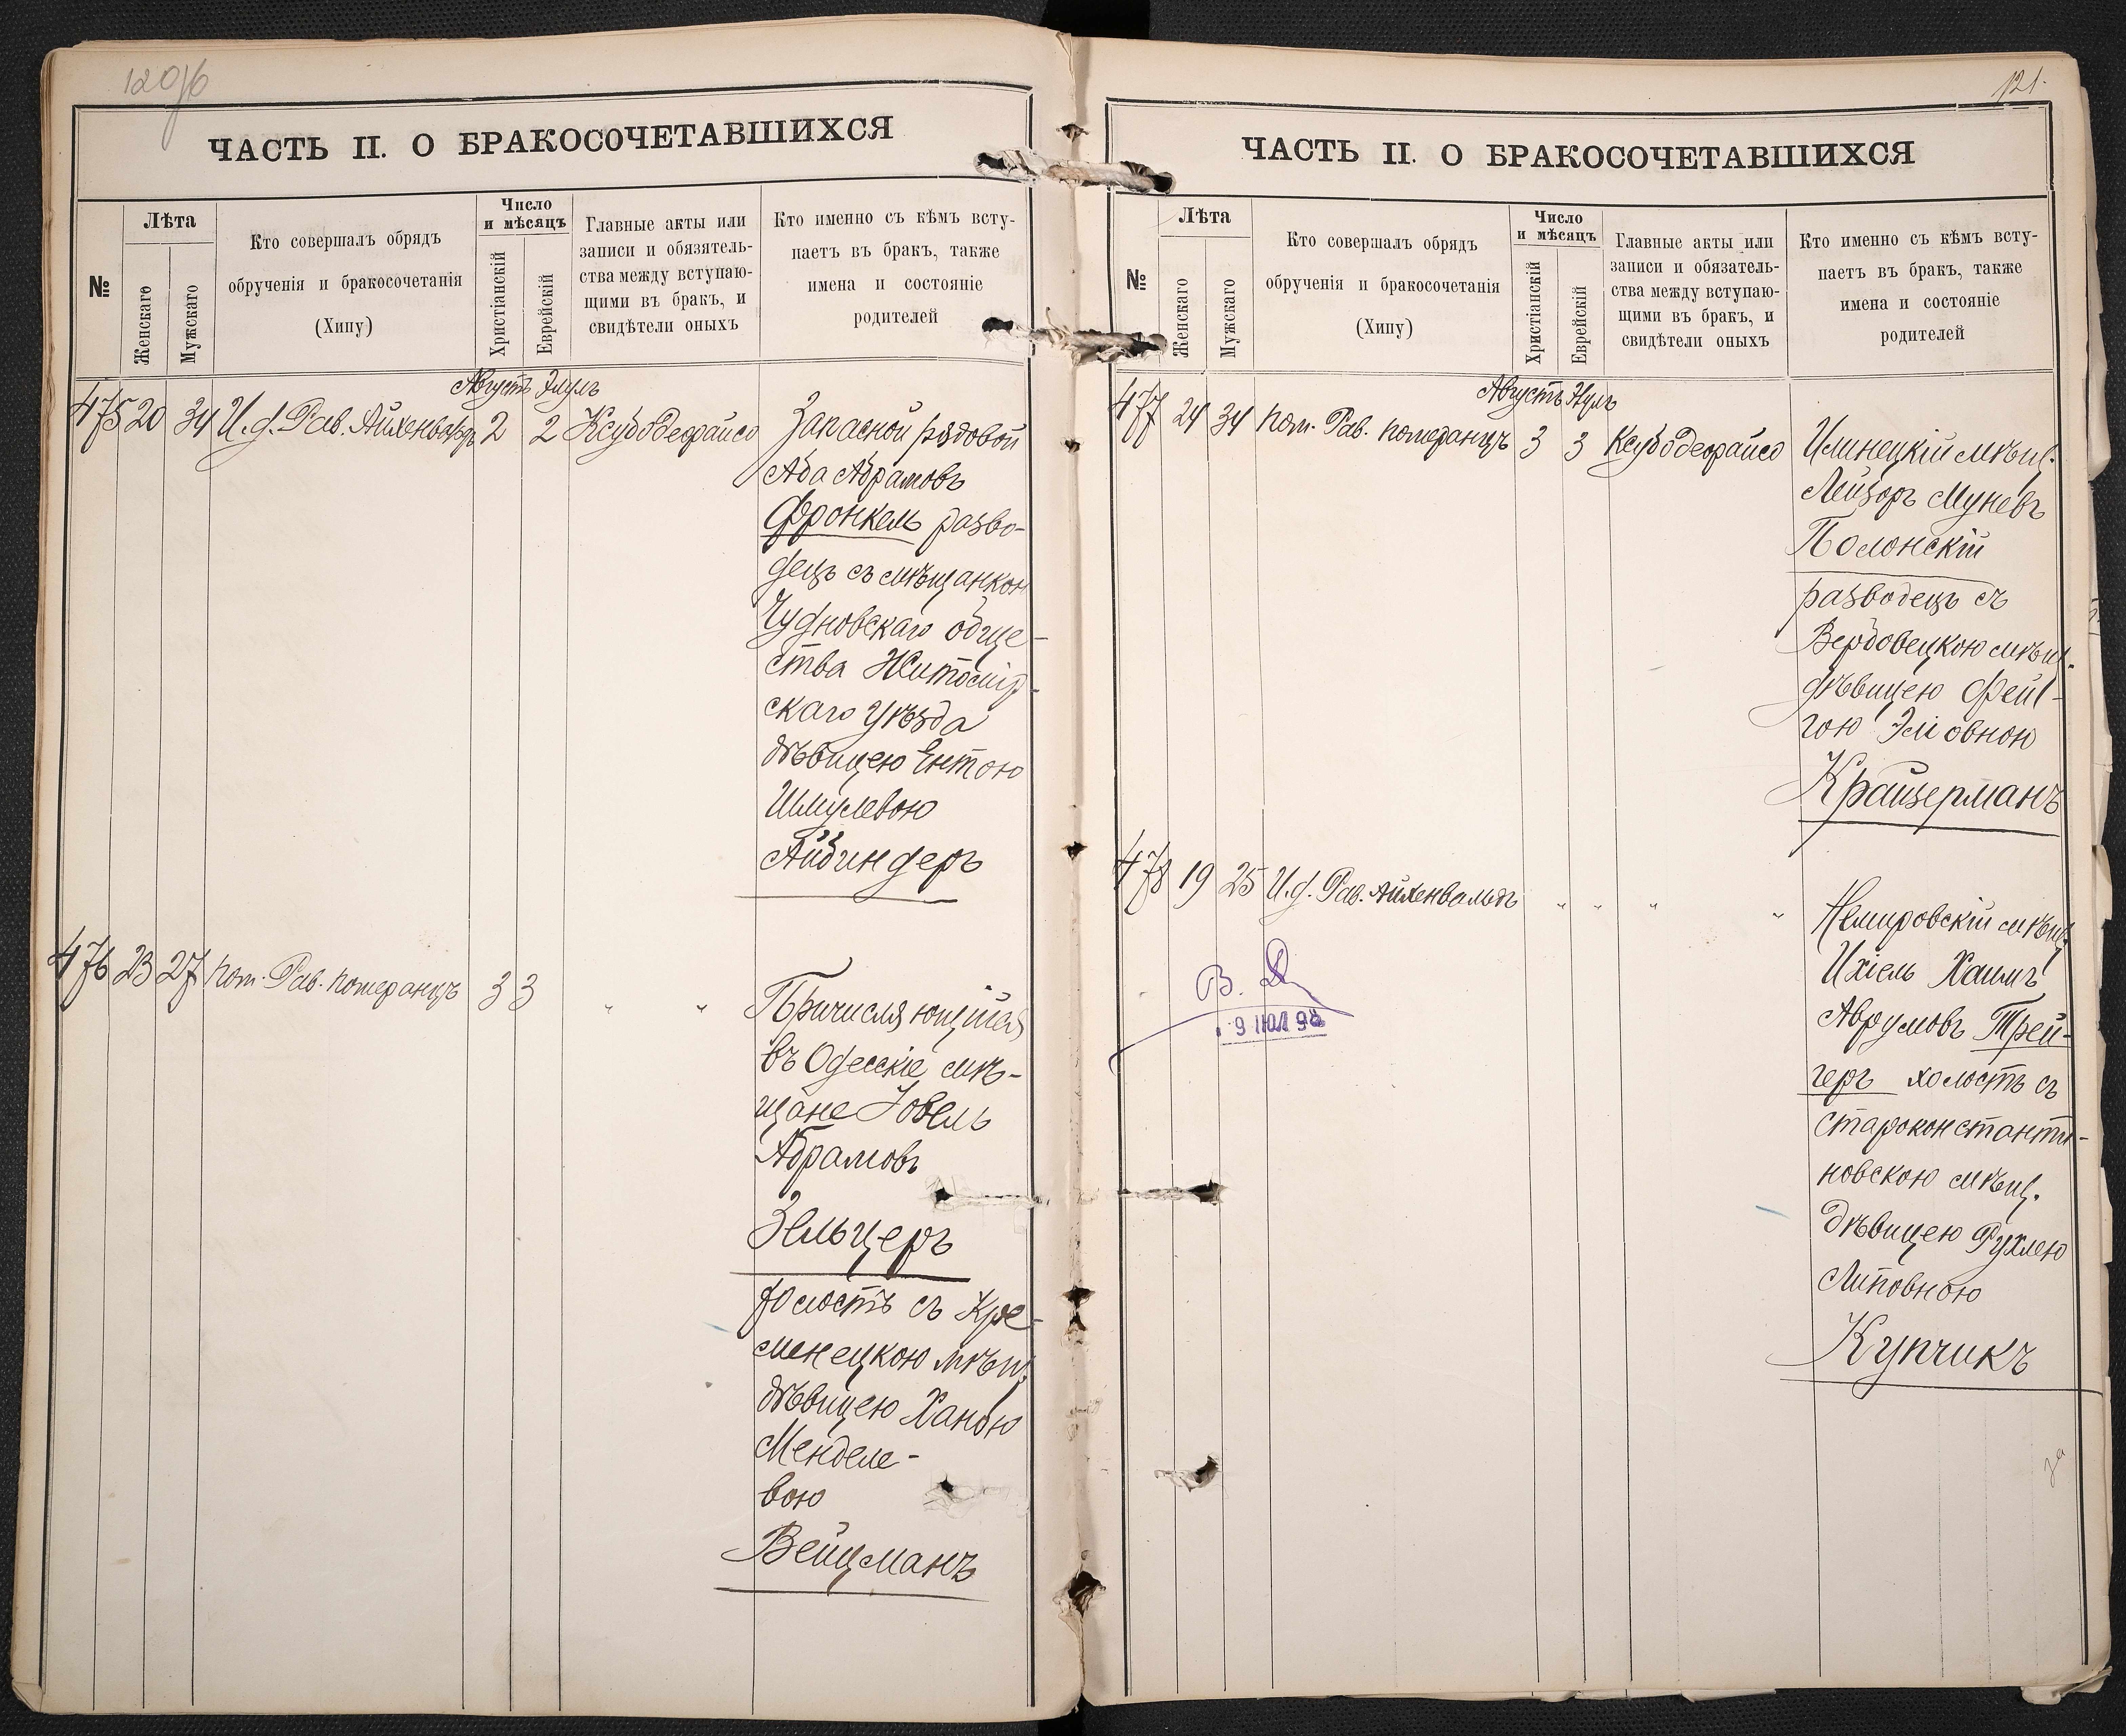 120об
ЧАСТЬ II. О БРАКОСОЧЕТАВШИХСЯ
№
Лѣта
Женскаго
Мужскаго
Кто совершалъ обрядъ
обрученія и бракосочетанія
(Хипу)
Число
и мѣсяцъ
Христіанскій
Еврейскій
Главные акты или
записи и обязятель-
ства между вступаю-
щими въ бракъ, и
свидѣтели оныхъ
Кто именно съ кѣмъ всту-
паетъ въ бракъ, также
имена и состояніе
родителей
Августъ Элулъ
475 20 34 И.д. Рав. Айхенвальдъ 2 2 Ксубодеорайсо
Запасной рядовой
Аба Абрамовъ
Фронкель разво-
децъ съ мѣщанкою
Чудновскаго обще-
ства Житомір-
скаго уѣзда
дѣвицею Ентою
Шмулевою
Айбиндеръ
476 23 27 пом. Рав. Померанцъ 3 3 " "
Причисляющійся
въ Одесскіе мѣ-
щане Іовель
Абрамовъ
Зельцеръ
холостъ съ Кре-
менецкою мѣщ.
дѣвицею Ханою
Менделе-
вою
Вейцманъ
121.
ЧАСТЬ II. О БРАКОСОЧЕТАВШИХСЯ
№
Лѣта
Женскаго
Мужскаго
Кто совершалъ обрядъ
обрученія и бракосочетанія
(Хипу)
Число
и мѣсяцъ
Христіанскій
Еврейскій
Главные акты или
записи и обязатель-
ства между вступаю-
щими въ бракъ, и
свидѣтели оныхъ
Кто именно съ кѣмъ всту-
паетъ въ бракъ, также
имена и состояніе
родителей
Августъ
477 24 34 пом. Рав. Померанцъ 3 3 Ксубодеорайсо
Илинецкій мѣщ.
Лейзоръ Муневъ
Полонскій
разводецъ съ
Вербовецкою мѣщ.
дѣвицею Фейг-
гою Эліовною
Крайзерманъ
478 19 25 И.д. Рав. Айхенвальдъ " " " "
9 ІЮЛ 98
Немировскій мѣщ.
Ихіель Хаимъ
Аврумовъ Трей-
геръ холостъ съ
Староконстанти-
новскою мѣщ.
дѣвицею Рухлею
Липовною
Купчикъ